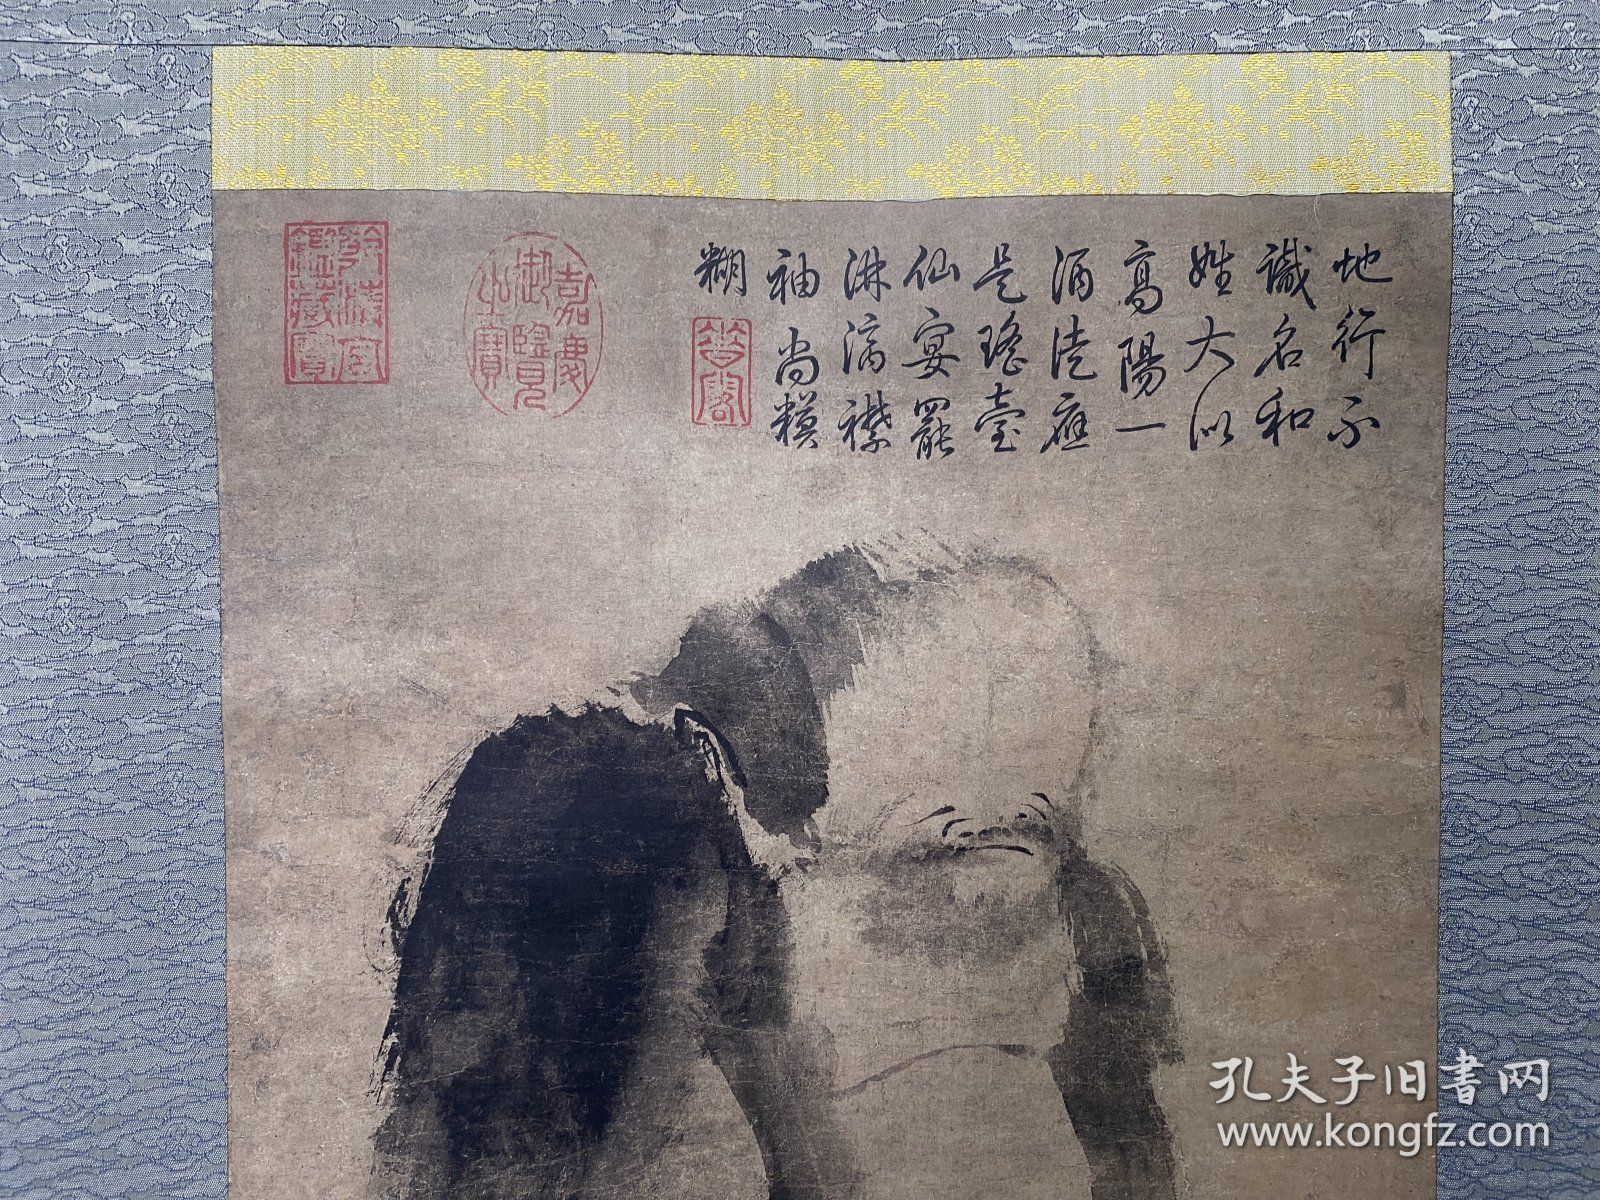 地行不
識名和
姓大似
高陽一
酒徒應
是瑤臺
仙宴罷
淋漓襟
袖尚模
糊
嘉慶
御覽
之寶
孔夫子旧书网
www.kongfz.com